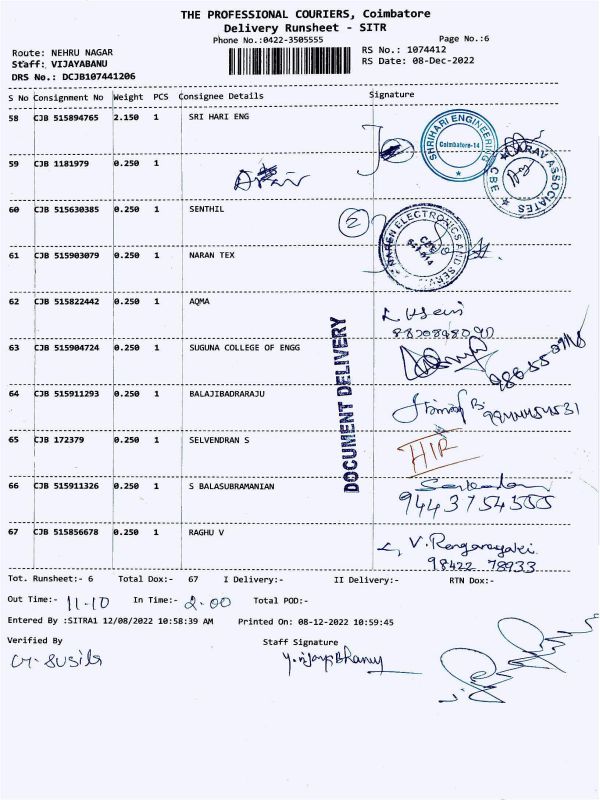 THE PROFESSIONAL COURIERS, Coimbatore
Delivery Runsheet - SITR
Phone No.:0422-3505555 Page No.:6
Route: NEHRU NAGAR RS No.: 1074412
Staff: VIJAYABANU RS Date: 08-Dec-2022
DRS No.: DCJB107441206
S No Consignment No Weight PCS Consignee Details Signature
58 CJB 515894765 2.150 1 SRI HARI ENG
SHRIHARI ENGINEERING
Coimbatore-14
59 CJB 1181979 0.250 1
ASSOCIATES
CBE
60 CJB 515630385 0.250 1 SENTHIL
2
ELECTRONICS AND
61 CJB 515903079 0.250 1 NARAN TEX
62 CJB 515822442 0.250 1 AQMA
63 CJB 515904724 0.250 1 SUGUNA COLLEGE OF ENGG
64 CJB 515911293 0.250 1 BALAJIBADRARAJU
65 CJB 172379 0.250 1 SELVENDRAN S
H/R
66 CJB 515911326 0.250 1 S BALASUBRAMANIAN
67 CJB 515856678 0.250 1 RAGHU V
V. Renganayaki
98422 78933
DOCUMENT DELIVERY
Tot. Runsheet:- 6 Total Dox:- 67 I Delivery:- II Delivery:- RTN Dox:-
Out Time:- 11.10 In Time:- 2.00 Total POD:-
Entered By :SITRA1 12/08/2022 10:58:39 AM Printed On: 08-12-2022 10:59:45
Verified By Staff Signature